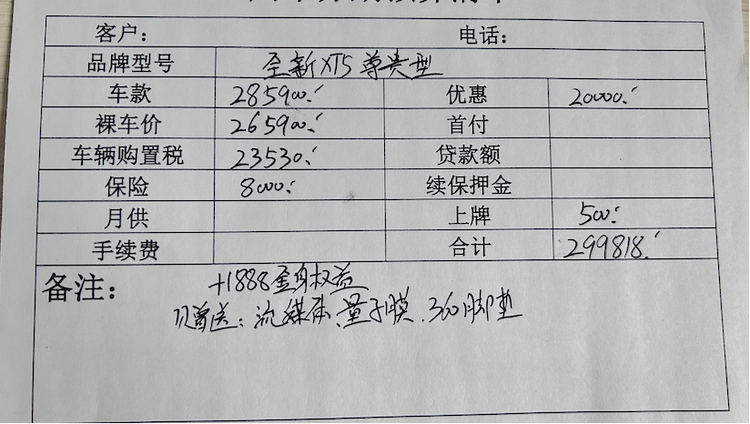 客户： 电话：
品牌型号 全新XT5 尊贵型
车款 285900. 优惠 20000.
裸车价 265900. 首付
车辆购置税 23530. 贷款额
保险 8000. 续保押金
月供 上牌 500.
手续费 合计 299818.
备注： +1888全身权益
赠送：流媒体、量子膜、360脚垫